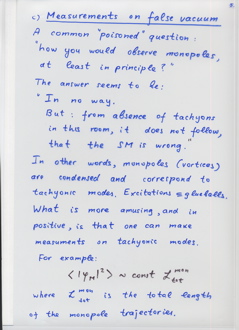 c) Measurements on false vacuum
A common "poisoned" question:
"how you would observe monopoles,
at least in principle?"
The answer seems to be:
"In no way.
But: from absence of tachyons
in this room, it does not follow,
that the SM is wrong."
In other words, monopoles (vortices)
are condensed and correspond to
tachyonic modes. Excitations ⊆ glueballs.
What is more amusing, and in
positive, is that one can make
measurments on tachyonic modes.
For example:
< |φ_M|² > ~ const L^{mon}_{tot}
where L^{mon}_{tot} is the total length
of the monopole trajectories.